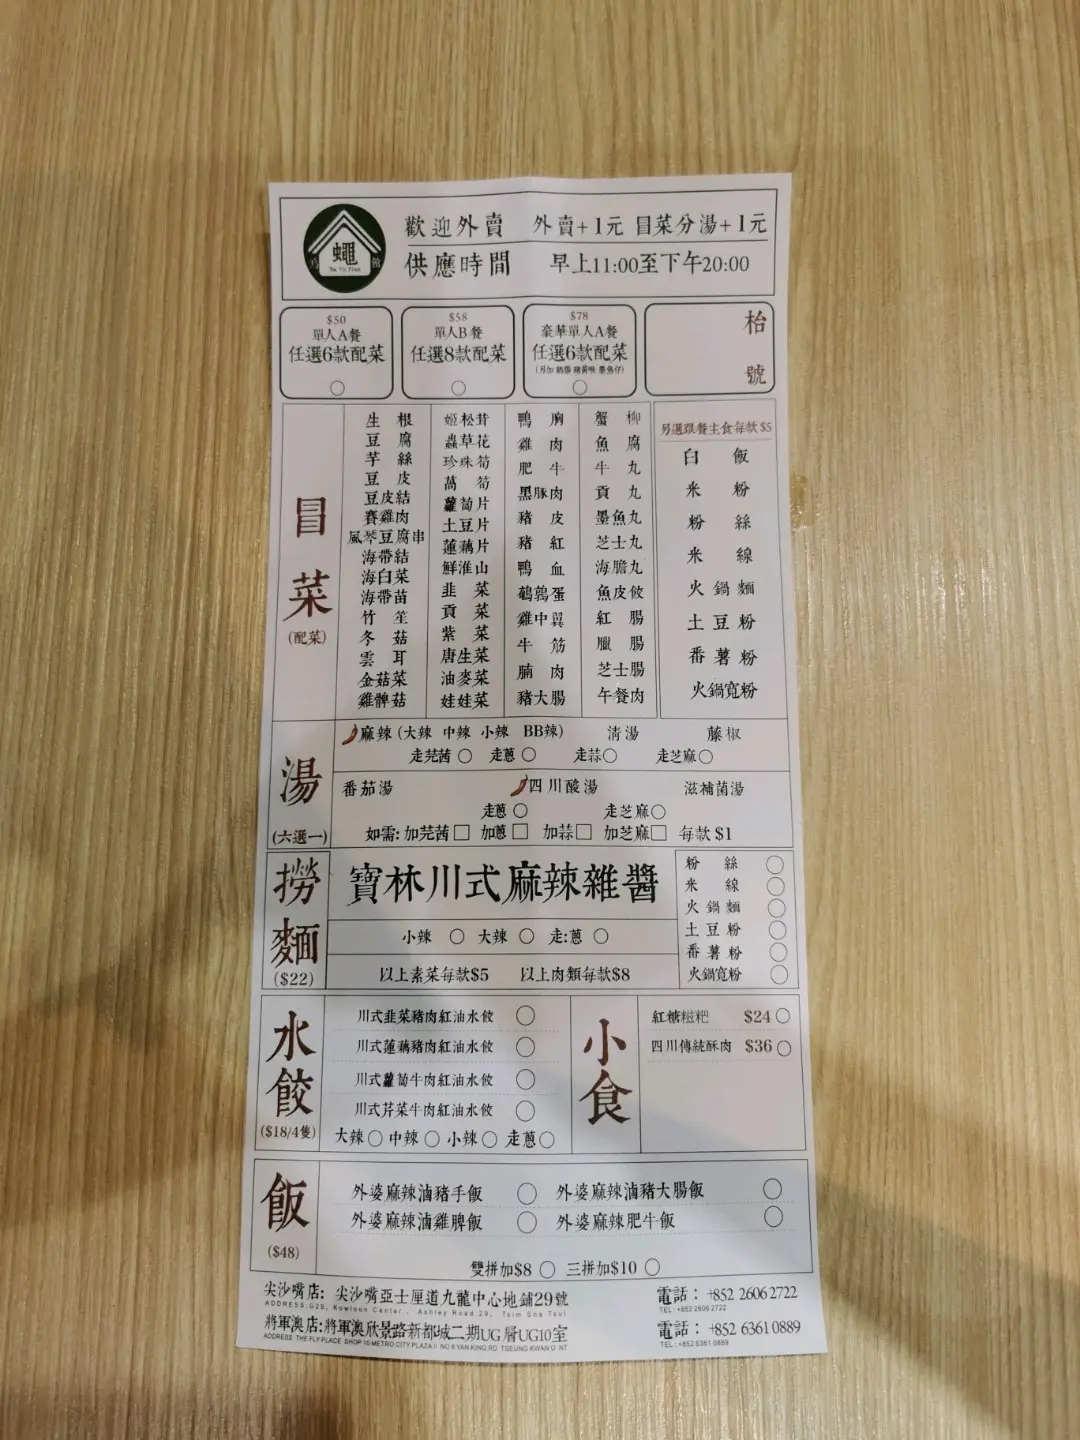 蠅
The Fly Place
歡迎外賣 外賣+1元 冒菜分湯+1元
供應時間 早上11:00至下午20:00
$50
單人A餐
任選6款配菜
$58
單人B餐
任選8款配菜
$78
豪華單人A餐
任選6款配菜
枱號
冒菜
(配菜)
生根
豆腐
芋絲
豆皮
豆皮結
賽雞肉
風琴豆腐串
海帶結
海白菜
海帶苗
竹笙
冬菇
雲耳
金菇菜
雞髀菇
姬松茸
蟲草花
珍珠筍
萵筍
蘿蔔片
土豆片
蓮藕片
鮮淮山
韭菜
貢菜
紫菜
唐生菜
油麥菜
娃娃菜
鴨胸
雞肉
肥牛
黑豚肉
豬皮
豬紅
鴨血
鵪鶉蛋
雞中翼
牛筋
腩肉
豬大腸
蟹柳
魚腐
牛丸
貢丸
墨魚丸
芝士丸
海膽丸
魚皮餃
紅腸
臘腸
芝士腸
午餐肉
另選跟餐主食每款$5
白飯
米粉
粉絲
米線
火鍋麵
土豆粉
番薯粉
火鍋寬粉
湯
(六選一)
麻辣(大辣 中辣 小辣 BB辣) 清湯 藤椒
走芫茜 走蔥 走蒜 走芝麻
番茄湯 四川酸湯 滋補菌湯
走蔥 走芝麻
如需:加芫茜 加蔥 加蒜 加芝麻 每款$1
撈麵
($22)
寶林川式麻辣雜醬
小辣 大辣 走:蔥
以上素菜每款$5 以上肉類每款$8
粉絲
米線
火鍋麵
土豆粉
番薯粉
火鍋寬粉
水餃
($18/4隻)
川式韭菜豬肉紅油水餃
川式蓮藕豬肉紅油水餃
川式蘿蔔牛肉紅油水餃
川式芹菜牛肉紅油水餃
大辣 中辣 小辣 走蔥
小食
紅糖糍粑 $24
四川傳統酥肉 $36
飯
($48)
外婆麻辣滷豬手飯 外婆麻辣滷豬大腸飯
外婆麻辣滷雞脾飯 外婆麻辣肥牛飯
雙拼加$8 三拼加$10
尖沙嘴店: 尖沙嘴亞士厘道九龍中心地鋪29號 電話: +852 2606 2722
ADDRESS:G29, Kowloon Center, Ashley Road 29, Tsim Sha Tsui TEL:+852 2606 2722
將軍澳店:將軍澳欣景路新都城二期UG層UG10室 電話: +852 6361 0889
ADDRESS THE FLY PLACE SHOP 10 METRO CITY PLAZA II NO 8 YAN KING RD TSEUNG KWAN O NT TEL:+852 6361 0889